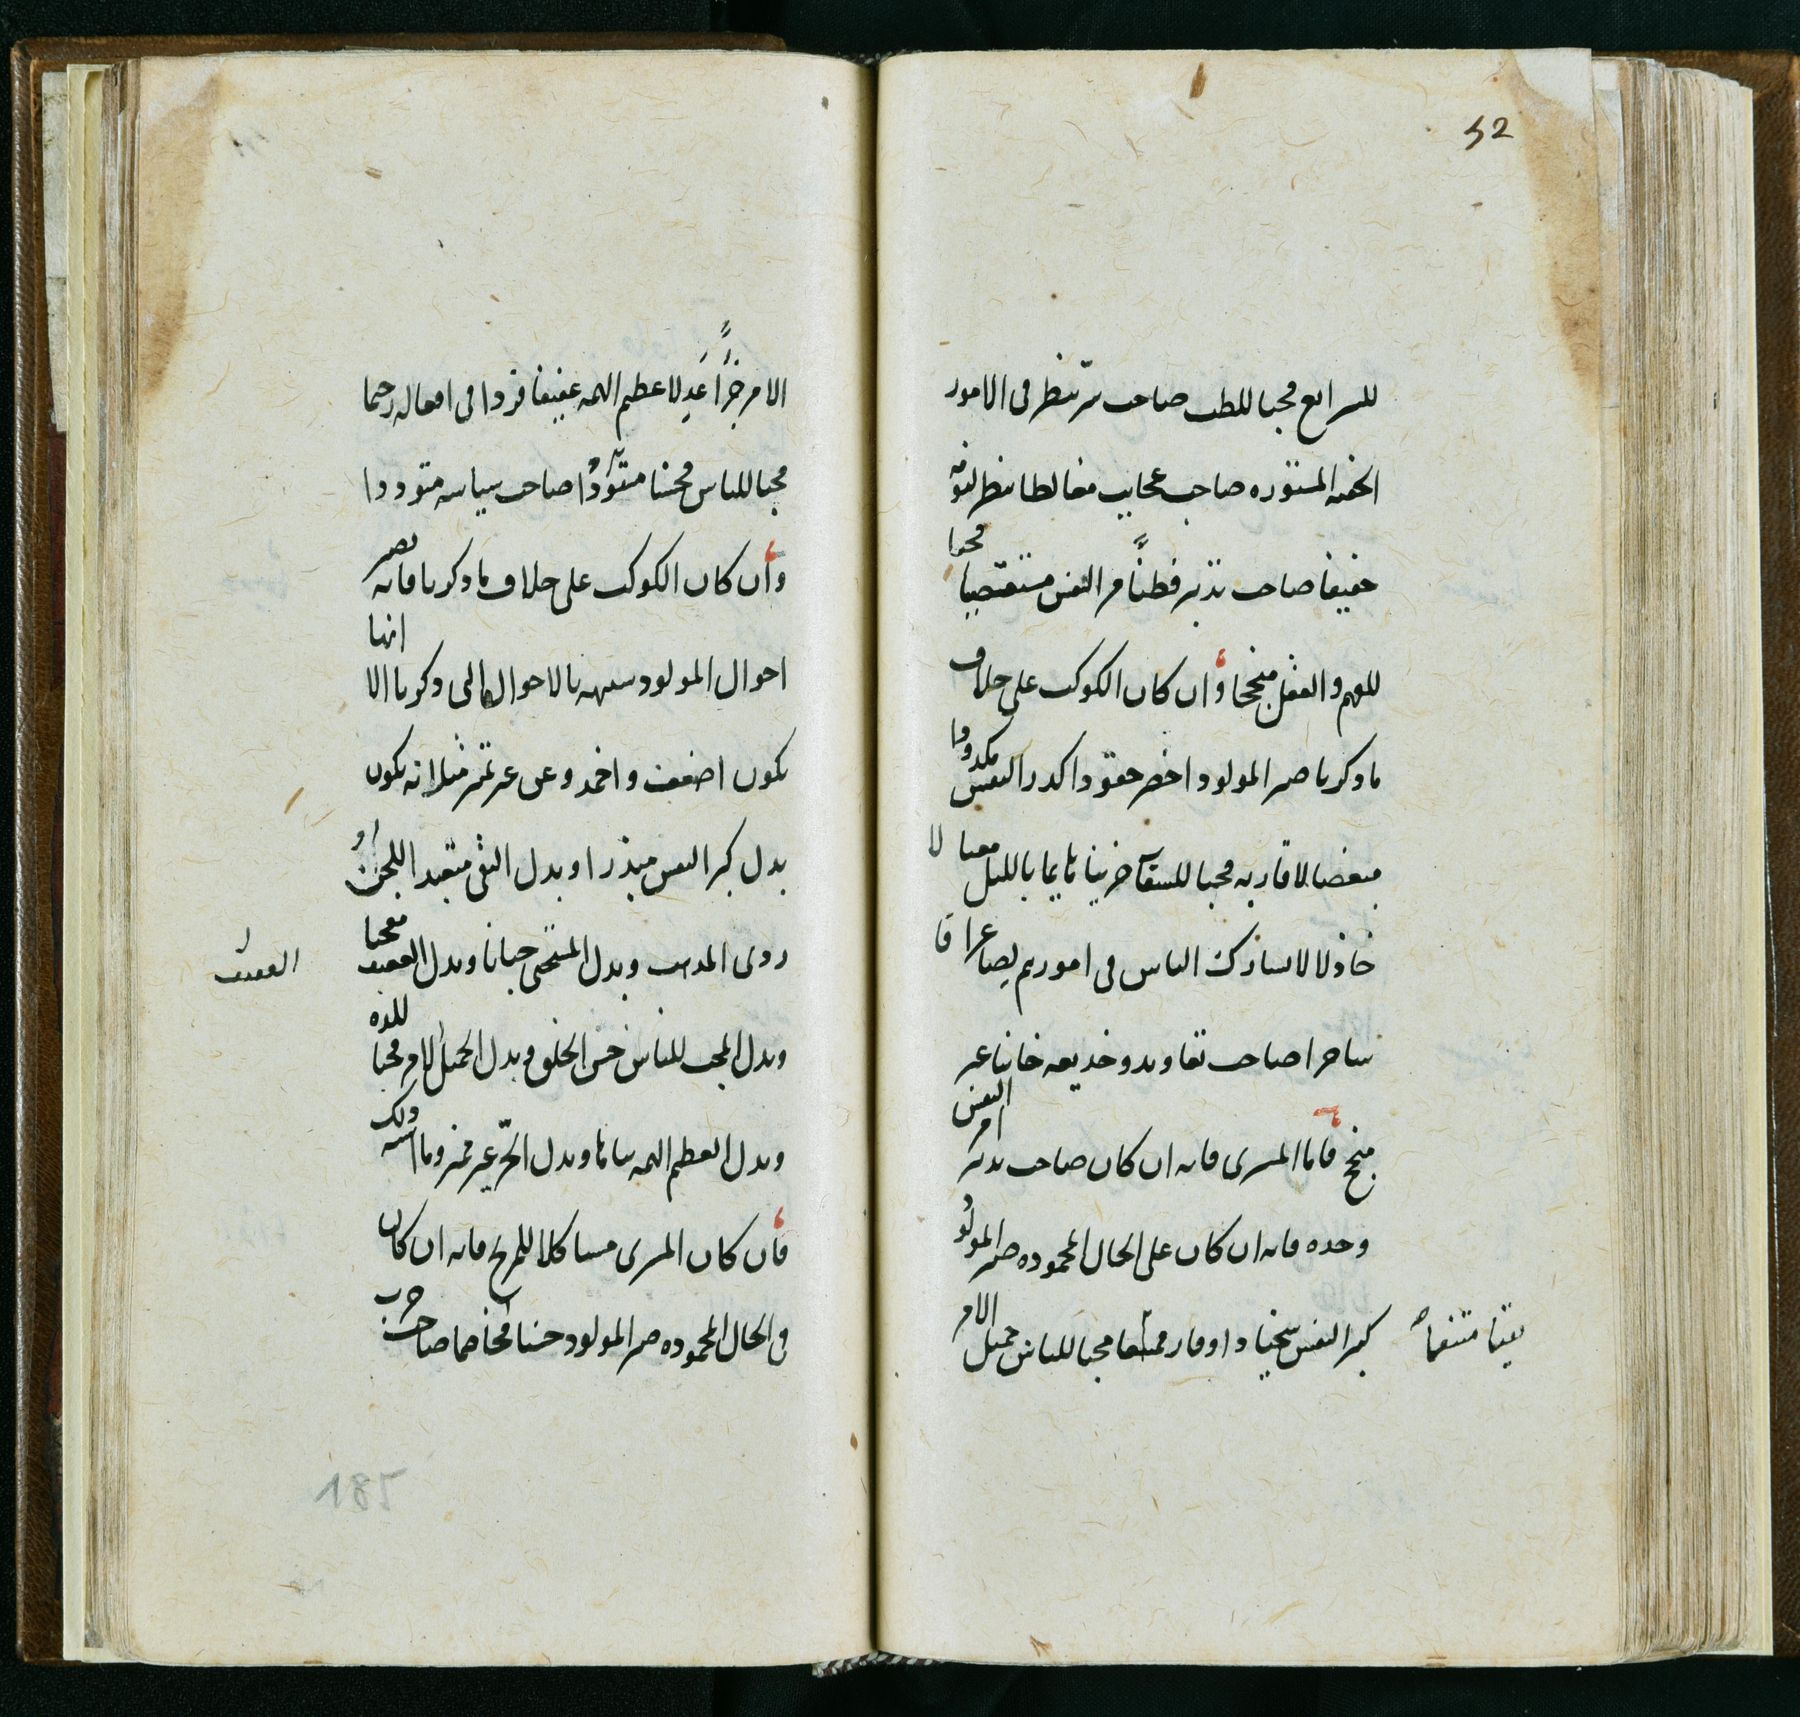 52
للسرايع محبا للطب صاحب سر ينظر فى الامور
الخفيه المستوره صاحب عجايب مغالطا ينظر
خفيفا صاحب تدبير فطنا مر النفس مستقصيا محبا
للفهم والعقل منجحا وان كان الكوكب على خلاف
ما ذكرنا صير المولود اخضر حقودا كدر النفس مكدودا
مبغضا لاقاربه محبا للشقا حزينا بالليل معيبا لا
خاذلا لا يشارك الناس فى امورهم لصا عراقا
ساحرا صاحب تعاويذ وخديعه خاينا عسر النفس
منجح فاما المشترى فانه ان كان صاحب تدبير امر
وحده فانه ان كان على الحال المحموده صير المولود
كبير النفس سخيا ذا وقار محبا للناس جميل الامر
الامر خيرا عديلا عظيم الهمه عفيفا فردا فى افعاله رحيما
محبا للناس محسنا متوددا صاحب سياسه متوددا
وان كان الكوكب على خلاف ما ذكرنا فانه يصير
احوال المولود شبيهه بالاحوال التى ذكرنا الا انها
يكون اضعف واخمد وعن غير تميز مثلا انه يكون
بدل كبر النفس مبذرا وبدل التقى متعبدا للجن
ردى المذهب وبدل المستحى جبانا وبدل العفيف معجبا
العفيف
وبدل المحب للناس حسن الخلق وبدل الجميل الامر محبا للذه
وبدل العظيم الهمه وبدل الحر غير وما اشبه ذلك
فان كان المشترى مشاكلا للمريخ فانه ان كان
فى الحال المحموده صير المولود خشنا مخاصما صاحب حرب
187